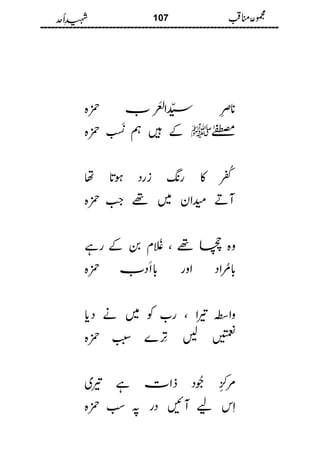 مجموعۂ مناقب 107 شہیدِ اُحد
ناصرِ سیّدالعَرَب حمزہ
مصطفےٰ ﷺ کے ہیں ہم نَسَب حمزہ
کُفر کا رنگ زرد ہوتا تھا
آتے میدان میں تھے جب حمزہ
وہ چچا تھے ، غُلام بن کے رہے
بامُراد اور بااَدب حمزہ
واسطہ تیرا ، رب کو میں نے دیا
نعمتیں لیں تِرے سبب حمزہ
مرکزِ جُود ذات ہے تیری
اِس لیے آئیں در پہ سب حمزہ